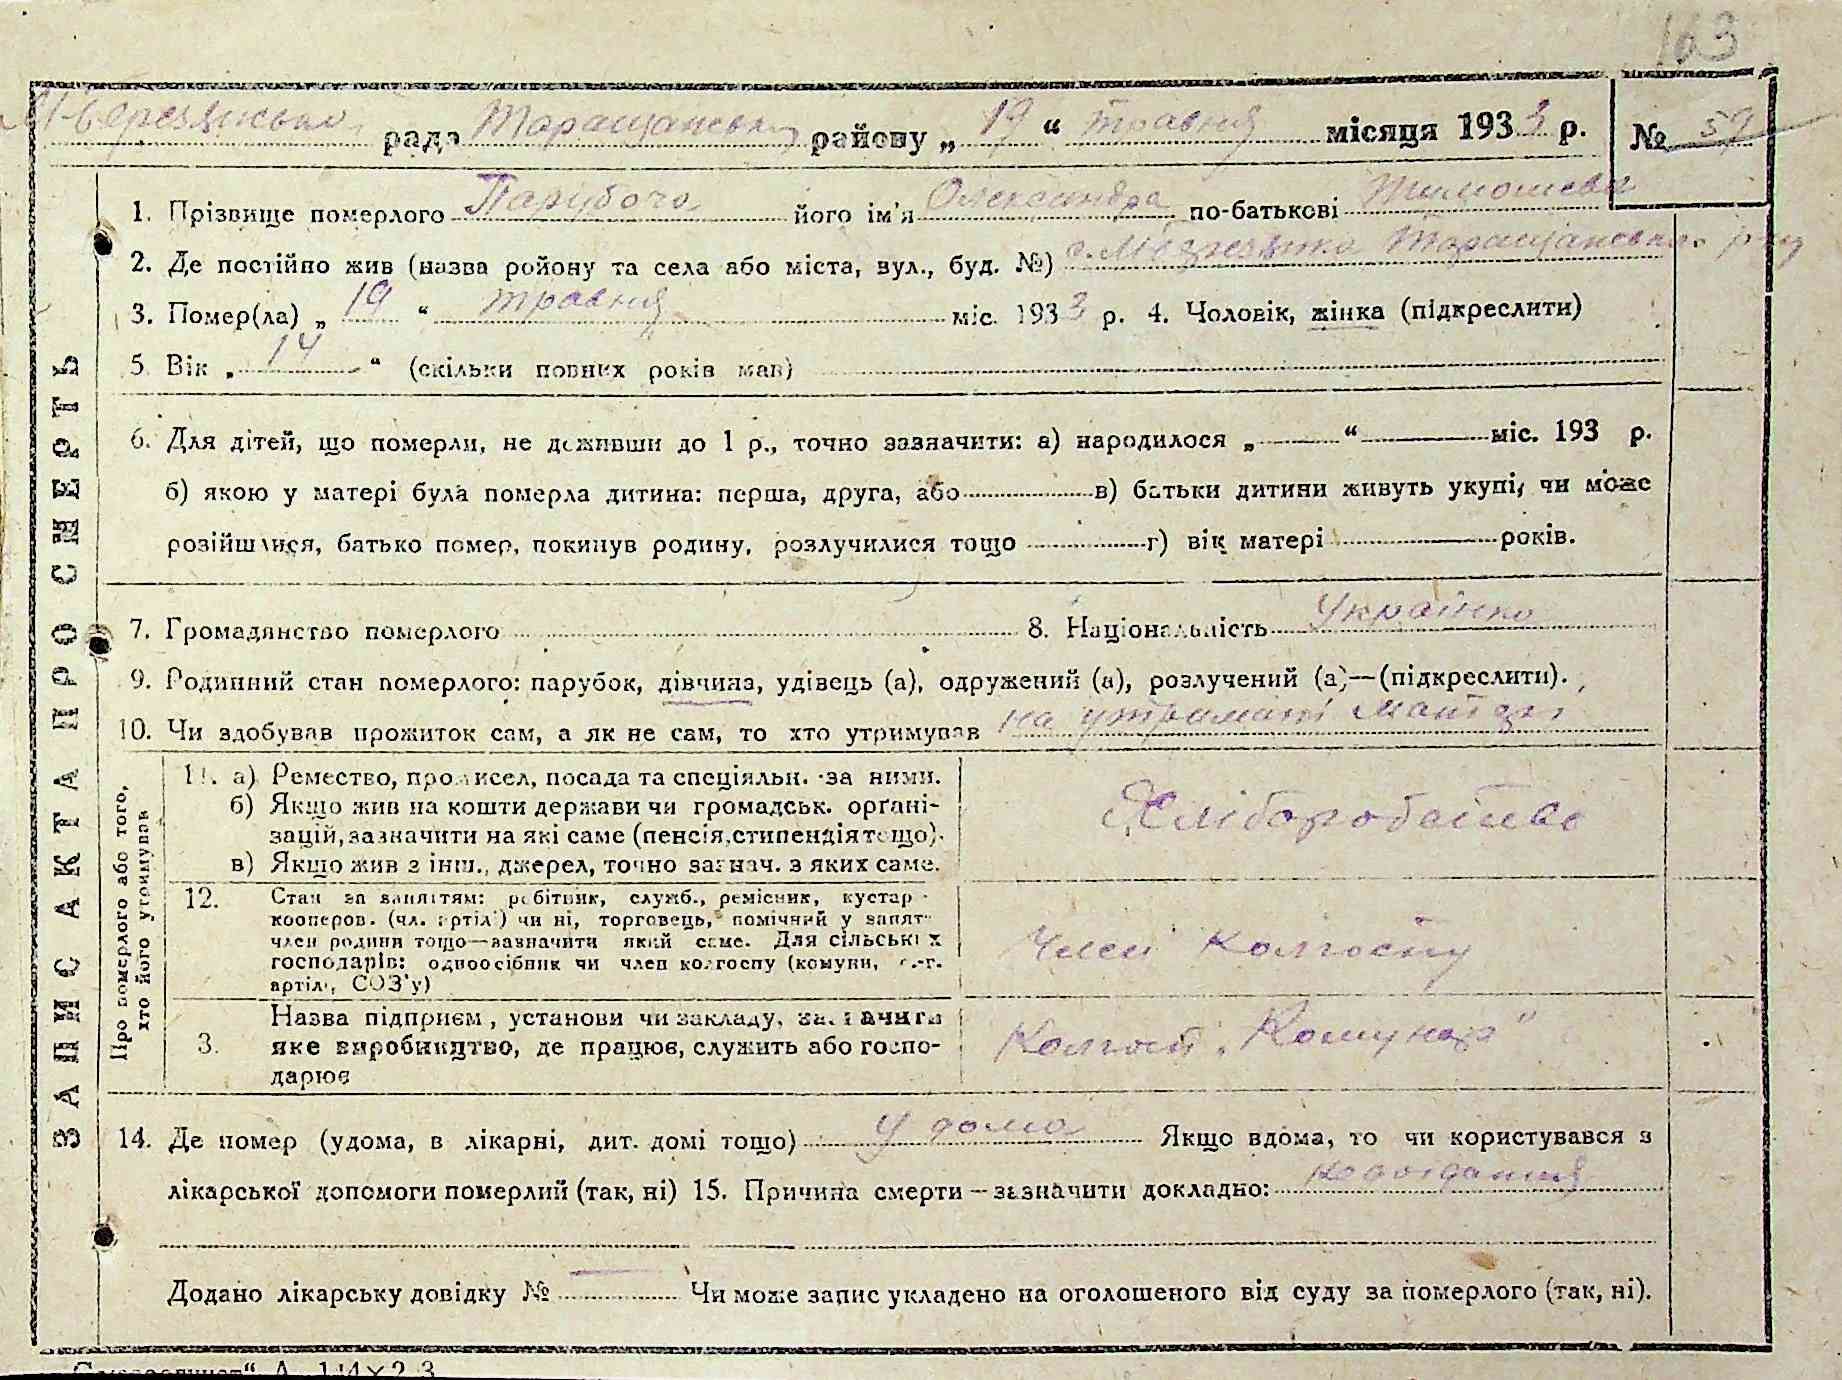 163
М-Березянська рада Таращанського району „19“ травня місяця 1933 р. № 59
1. Прізвище померлого Парубоча його ім'я Олександра по-батькові Тимошева
2. Де постійно жив (назва ройону та села або міста, вул., буд. №) с. М-Березянка Таращанського р-ну
3. Помер(ла) „19“ травня міс. 1933 р. 4. Чоловік, жінка (підкреслити)
5 Вік „14“ (скільки повних років мав)
6. Для дітей, що померли, не доживши до 1 р., точно зазначити: а) народилося „ — “ — міс. 193 р.
б) якою у матері була померла дитина: перша, друга, або в) батьки дитини живуть укупі, чи може
розійшлися, батько помер, покинув родину, розлучилися тощо г) вік матері років.
7. Громадянство померлого 8. Національність Українка
9. Родинний стан померлого: парубок, дівчина, удівець (а), одружений (а), розлучений (а)—(підкреслити).
10. Чи здобував прожиток сам, а як не сам, то хто утримував на утримані
11. а) Ремество, промисел, посада та спеціяльн. за ними.
б) Якщо жив на кошти держави чи громадськ. орґані-
зацій, зазначити на які саме (пенсія, стипендія тощо).
в) Якщо жив з інш., джерел, точно зазнач. з яких саме.
Хліборобство
12. Стан за заняттям: робітник, служб., ремісник, кустар
кооперов. (чл. артілі) чи ні, торговець, помічний у занят-
член родини тощо—зазначити який саме. Для сільських
господарів: одноосібник чи член колгоспу (комуни, с.-г.
артілі, СОЗ'у)
Член колгоспу
3. Назва підприєм, установи чи закладу, зазначити
яке виробництво, де працює, служить або госпо-
дарює
Колгосп „Комунар“
14. Де помер (удома, в лікарні, дит. домі тощо) у дома Якщо вдома, то чи користувався з
лікарської допомоги померлий (так, ні) 15. Причина смерти—зазначити докладно: недоїдання
Додано лікарську довідку № — Чи може запис укладено на оголошеного від суду за померлого (так, ні).
ЗАПИС АКТА ПРО СМЕРТЬ
Про померлого або того,
хто його утримував